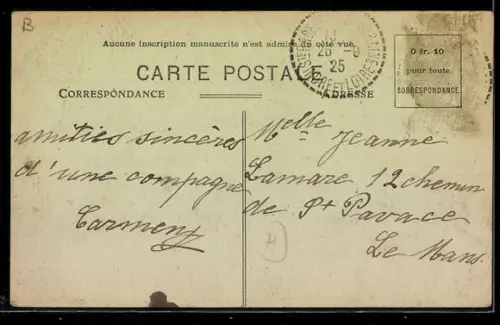 B
Aucune inscription manuscrite n'est admise du côté vue.
CARTE POSTALE
CORRESPONDANCE
ADRESSE
26 -9
25
INDRE ET LOIRE
0 fr. 10
pour toute
CORRESPONDANCE
amitiés sincères
d'une compagne
Carmen
Melle Jeanne
Lamare 12 chemin
de Pt Pavace
Le Mans
4